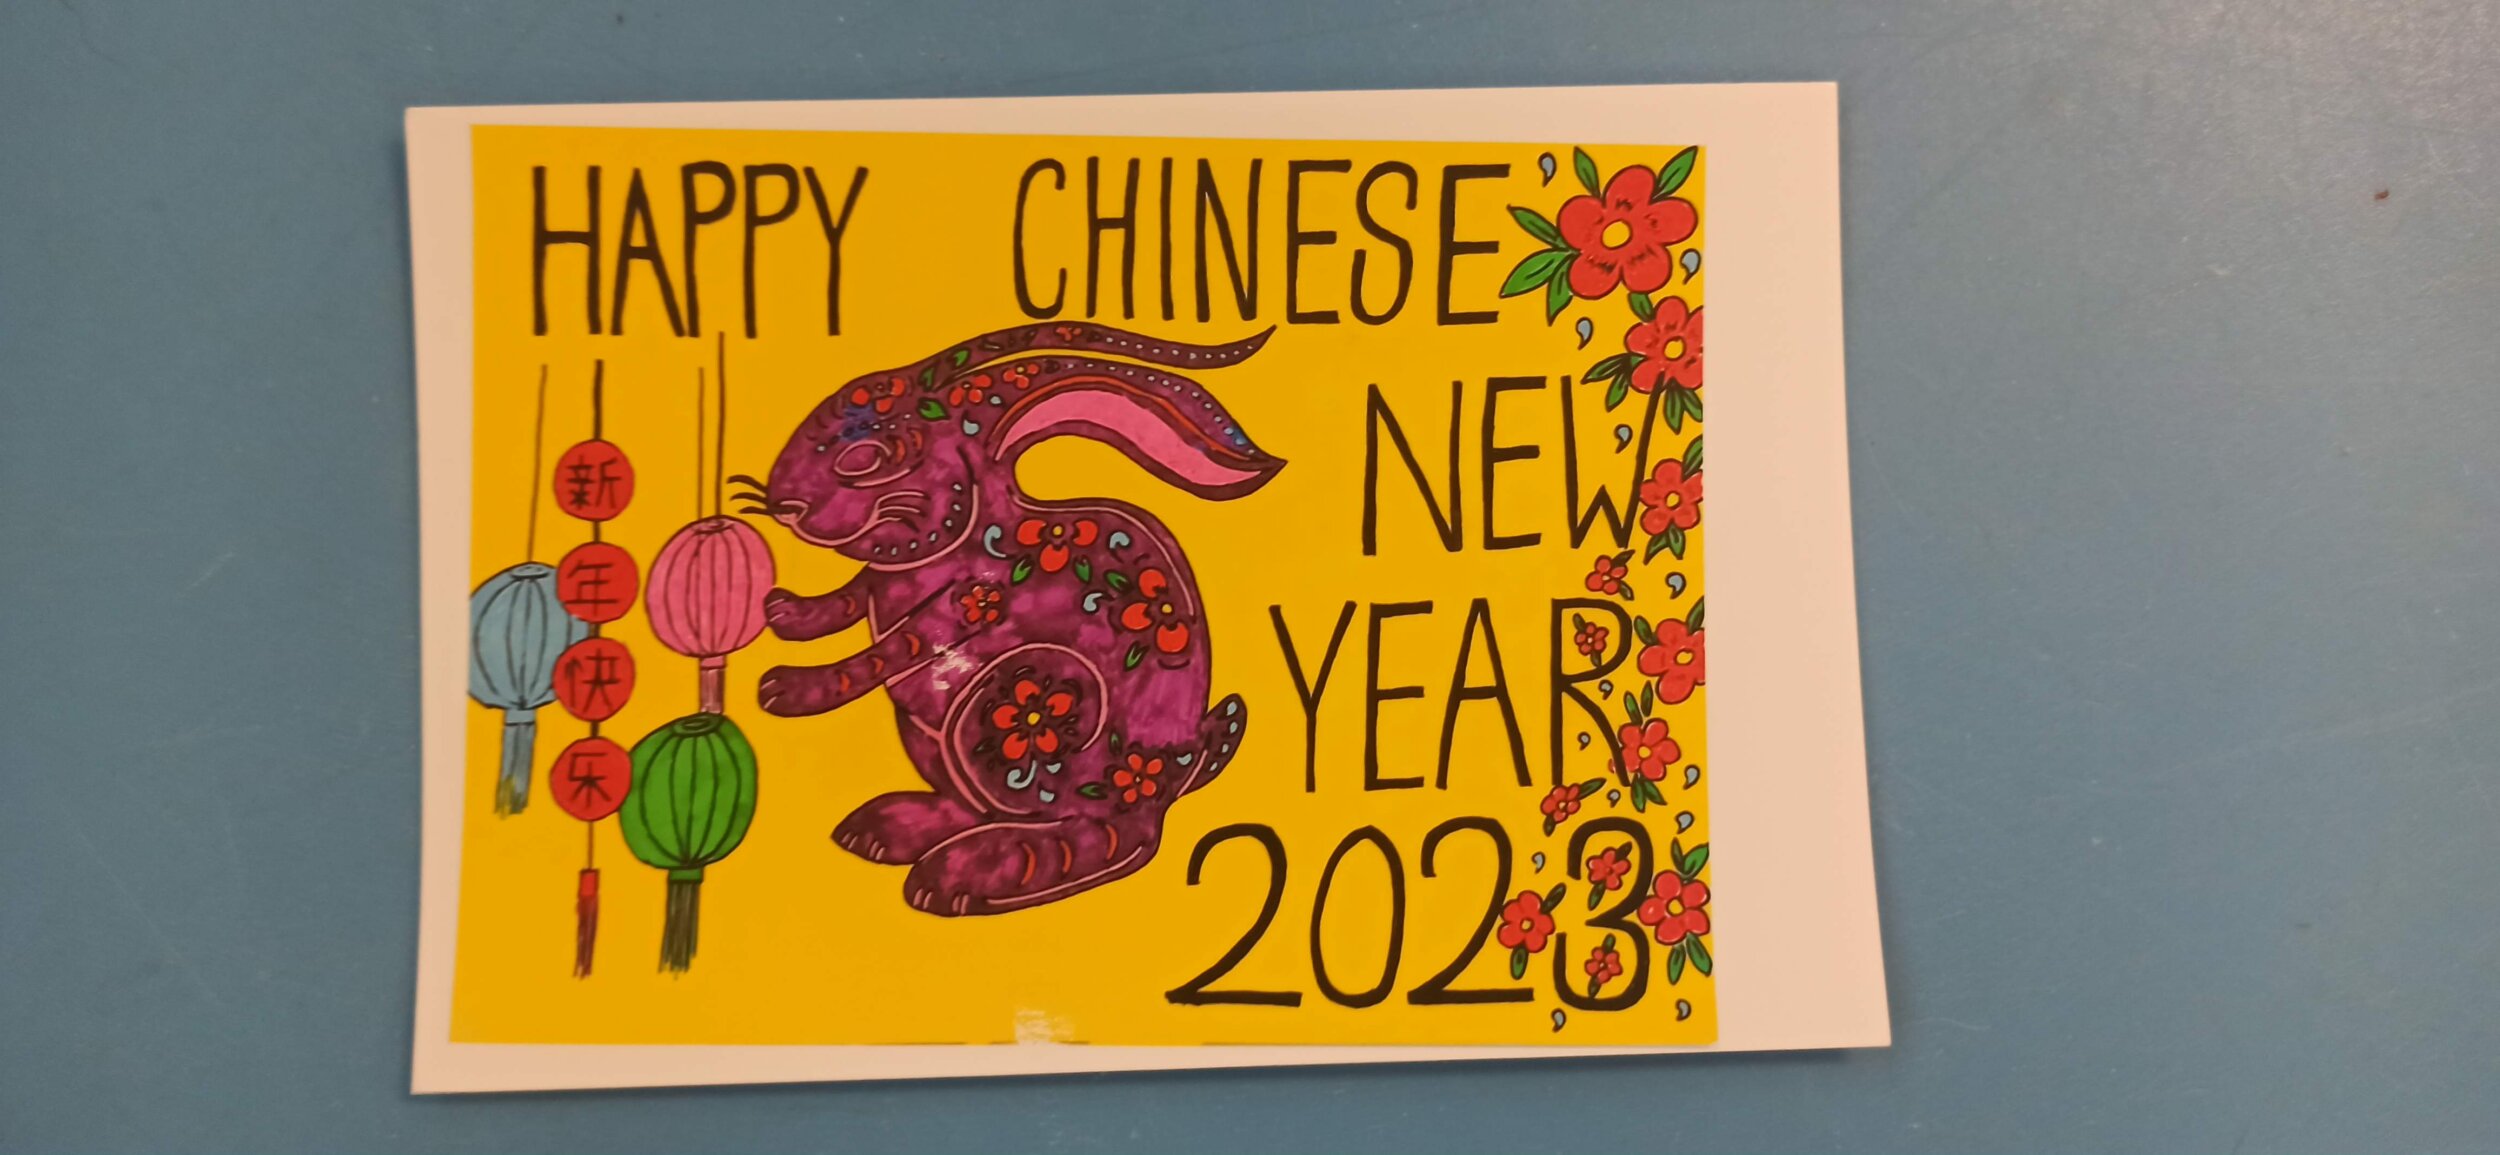 HAPPY CHINESE
NEW
YEAR
2023
新
年
快
乐